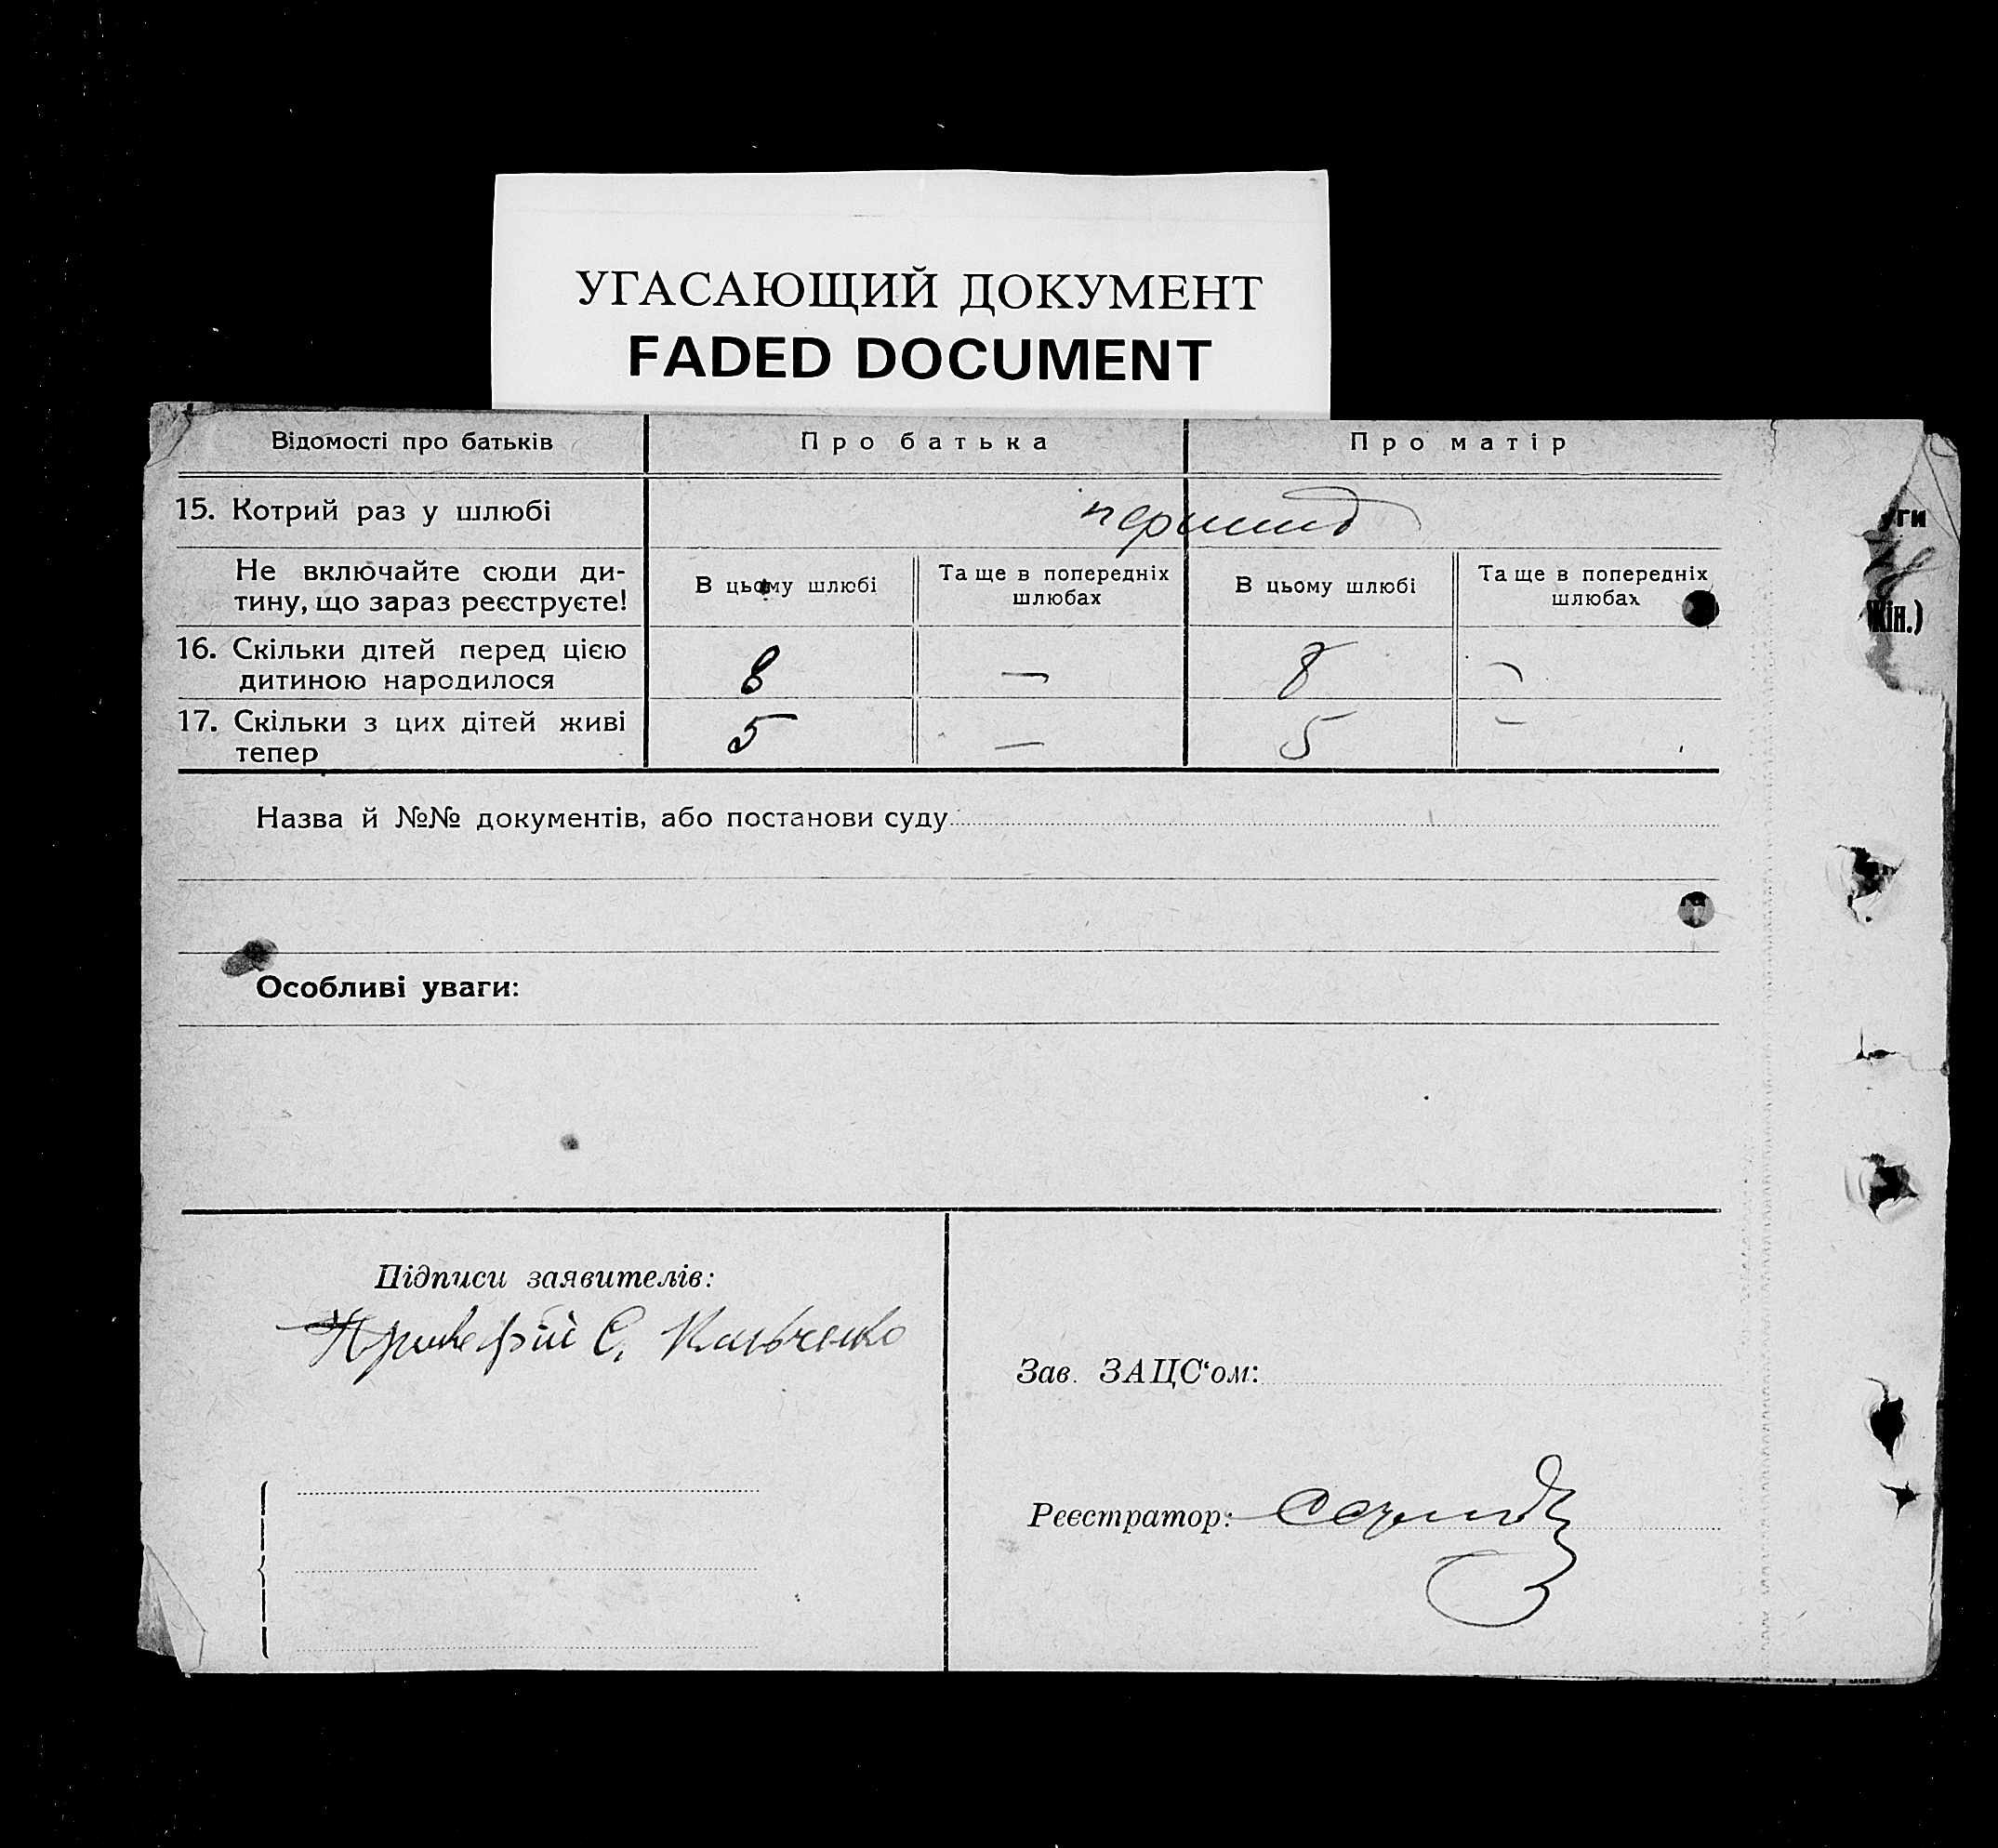 УГАСАЮЩИЙ ДОКУМЕНТ
FADED DOCUMENT
Відомості про батьків
Про батька
Про матір
15. Котрий раз у шлюбі
перший
Не включайте сюди ди-
тину, що зараз реєструєте!
В цьому шлюбі
Та ще в попередніх
шлюбах
В цьому шлюбі
Та ще в попередніх
шлюбах
16. Скільки дітей перед цією
дитиною народилося
8
—
8
—
17. Скільки з цих дітей живі
тепер
5
—
5
—
Назва й №№ документів, або постанови суду
Особливі уваги:
Підписи заявителів:
С.
Зав. ЗАЦС‘ом:
Реєстратор:
ги
жін.)